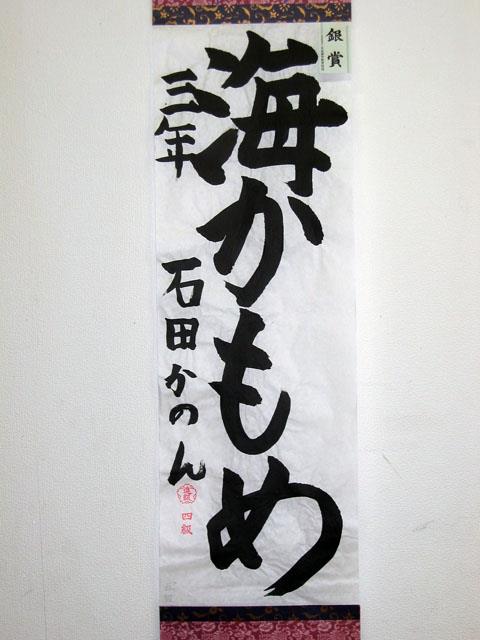 銀賞
海かもめ
三年 石田かのん
四級